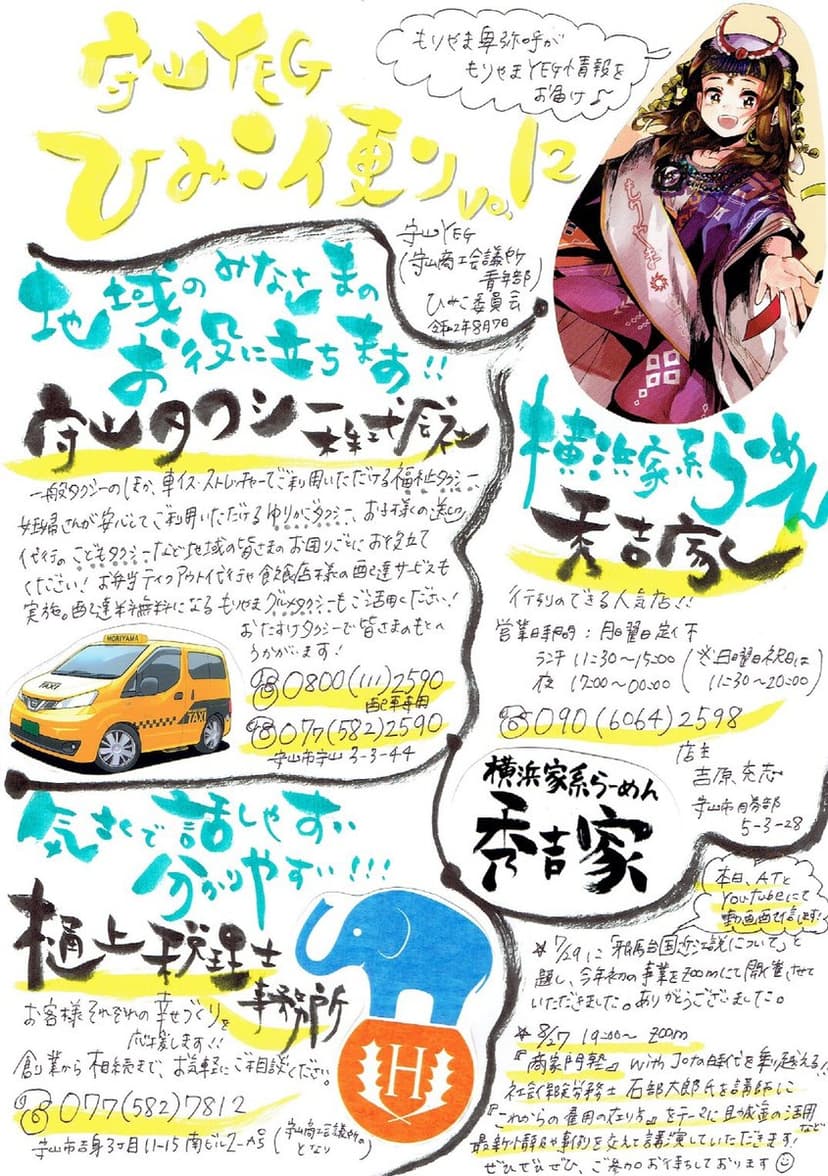 守山YEG
ひみこ便りvo.12
もりやま卑弥呼が
もりやまYEG情報を
お届け♪
もりやま
守山YEG
(守山商工会議所
青年部)
ひみこ委員会
令和2年8月7日
地域のみなさまの
お役に立ちます!!
守山タクシー株式会社
一般タクシーのほか、車イス・ストレッチャーでご利用いただける福祉タクシー、
妊婦さんが安心してご利用いただけるゆりかごタクシー、お子様の送り
代行の、こどもタクシーなど地域の皆さまのお困りごとにお役立て
ください!お弁当テイクアウト代行や飲食店様の配達サービスも
実施。配達料無料になるもりやまグルメタクシーもご活用ください!
おたすけタクシーで皆さまのもとへ
うかがいます!
MORIYAMA
TAXI
TAXI
0800(111)2590
配車専用
077(582)2590
守山市守山3-3-44
横浜家系らーめん
秀吉家
行列のできる人気店!!
営業時間:月曜日定休
ランチ 11:30〜15:00
夜 17:00〜00:00
(※日曜祝日は
11:30〜20:00)
090(6064)2598
店主
吉原 充志
守山市勝部
5-3-28
横浜家系らーめん
秀吉家
気さくで話しやすい
分かりやすい!!!
樋上税理士
事務所
お客様それぞれの幸せづくりを
応援します!!
創業から相続まで、お気軽にご相談ください。
077(582)7812
守山市吉身3丁目11-15 南ビル2-か号
(守山商工会議所の
となり)
H
本日、ATと
YouTubeにて
動画配信します!!
☆7/29に「邪馬台国近江説について」と
題し、今年初の事業をzoomにて開催させて
いただきました。ありがとうございました。
☆8/27 19:00〜 zoom
『商家門塾』withコロナ時代を乗り越える!!
社会保険労務士 石部太郎氏を講師に
『これからの雇用の在り方』をテーマに助成金の活用など
最新情報や事例を交えて講演していただきます!
ぜひぜひぜひ、ご参加お待ちしております